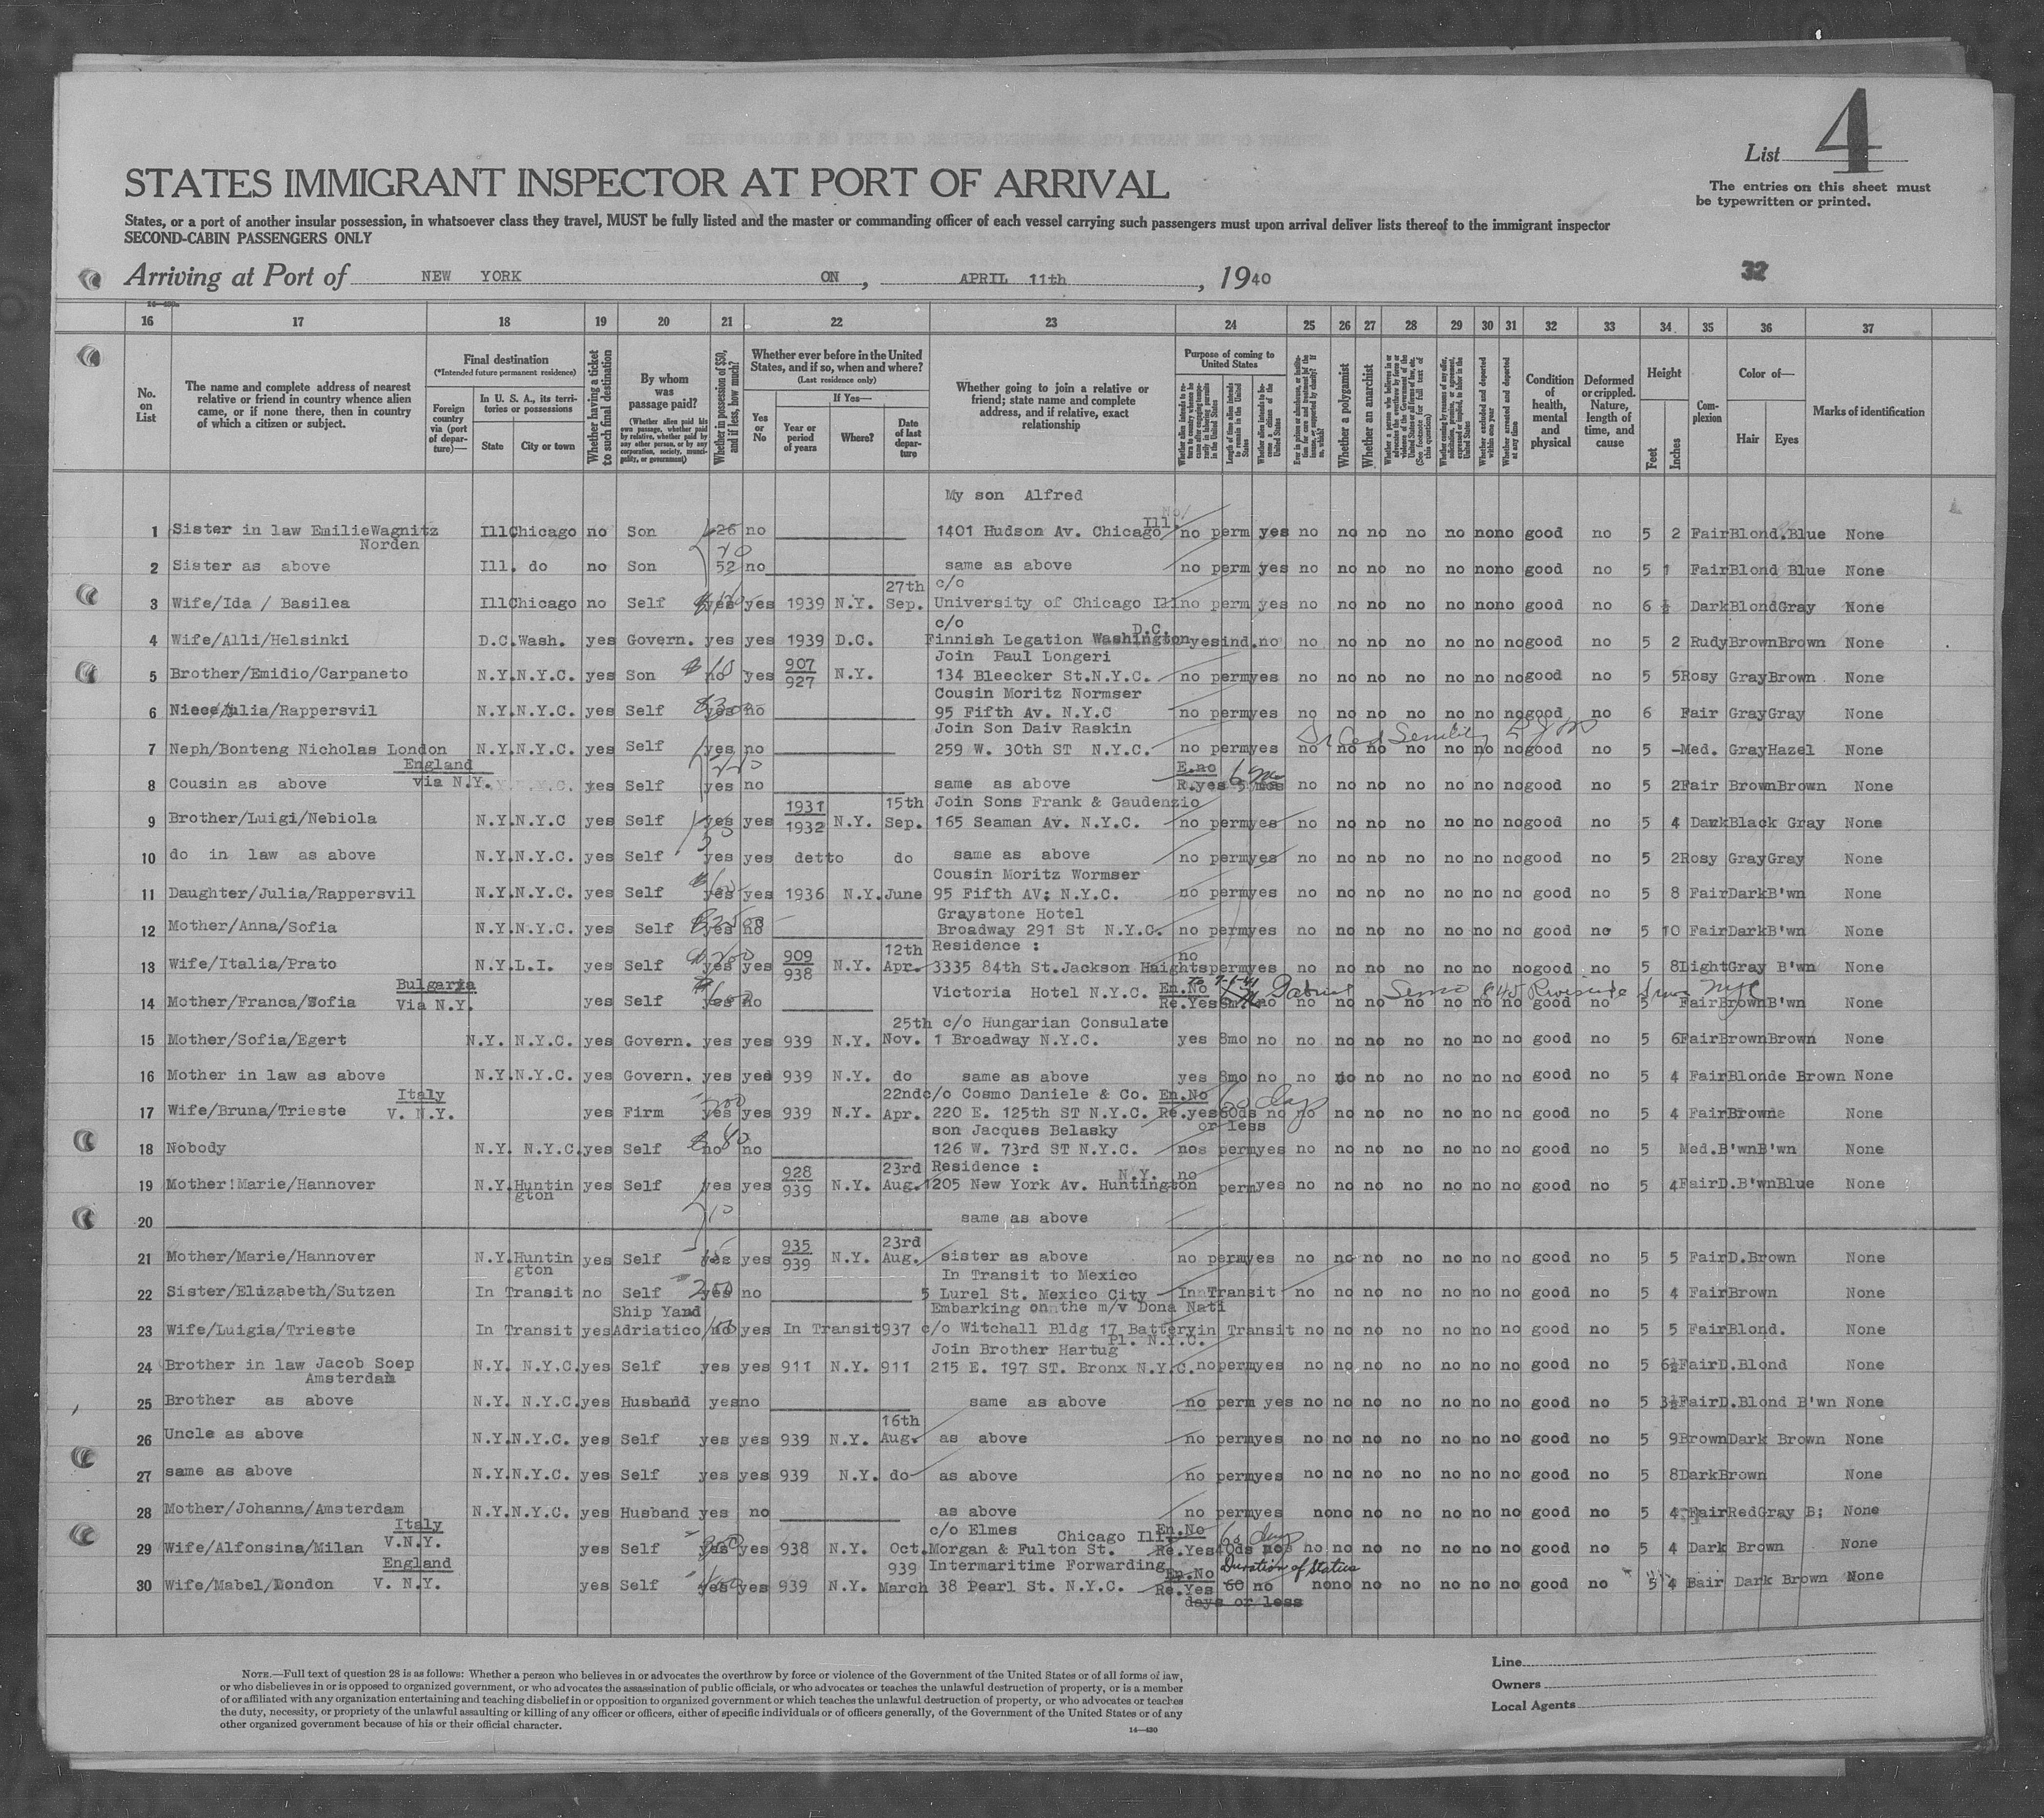 List 4
The entries on this sheet must
be typewritten or printed.
STATES IMMIGRANT INSPECTOR AT PORT OF ARRIVAL
States, or a port of another insular possession, in whatsoever class they travel, MUST be fully listed and the master or commanding officer of each vessel carrying such passengers must upon arrival deliver lists thereof to the immigrant inspector
SECOND-CABIN PASSENGERS ONLY
Arriving at Port of NEW YORK ON, APRIL 11th, 1940
32
16 17 18 19 20 21 22 23 24 25 26 27 28 29 30 31 32 33 34 35 36 37
No. on List
The name and complete address of nearest relative or friend in country whence alien came, or if none there, then in country of which a citizen or subject.
Final destination
(*Intended future permanent residence)
Foreign country via (port of departure)—
In U. S. A., its territories or possessions
State
City or town
Whether having a ticket to such final destination
By whom was passage paid?
(Whether alien paid his own passage, whether paid by relative, whether paid by any other person, or by any corporation, society, municipality, or government)
Whether in possession of $50, and if less, how much?
Whether ever before in the United States, and if so, when and where?
(Last residence only)
Yes or No
If Yes—
Year or period of years
Where?
Date of last departure
Whether going to join a relative or friend; state name and complete address, and if relative, exact relationship
Purpose of coming to United States
Length of time alien intends to remain in the United States
Whether alien intends to become a citizen of the United States
Whether a polygamist
Whether an anarchist
Condition of health, mental and physical
Deformed or crippled. Nature, length of time, and cause
Height
Feet
Inches
Complexion
Color of—
Hair
Eyes
Marks of identification
My son Alfred
1 Sister in law Emilie Wagnitz Ill Chicago no Son no 1401 Hudson Av. Chicago Ill. no perm yes no no no no no no no good no 5 2 Fair Blond. Blue None
Norden
2 Sister as above Ill. do no Son 52 no same as above no perm yes no no no no no no no good no 5 1 Fair Blond Blue None
27th c/o
3 Wife/Ida / Basilea Ill Chicago no Self yes yes 1939 N.Y. Sep. University of Chicago Ill no perm yes no no no no no no no good no 6 ½ Dark Blond Gray None
c/o D.C.
4 Wife/Alli/Helsinki D.C. Wash. yes Govern. yes yes 1939 D.C. Finnish Legation Washington yes ind. no no no no no no no no good no 5 2 Rudy Brown Brown None
Join Paul Longeri
5 Brother/Emidio/Carpaneto N.Y. N.Y.C. yes Son no yes 907 927 N.Y. 134 Bleecker St. N.Y.C. no perm yes no no no no no no no good no 5 5 Rosy Gray Brown None
Cousin Moritz Normser
6 Niece/Julia/Rappersvil N.Y. N.Y.C. yes Self yes no 95 Fifth Av. N.Y.C no perm yes no no no no no no no good no 6 Fair Gray Gray None
Join Son Daiv Raskin
7 Neph/Bonteng Nicholas London N.Y. N.Y.C. yes Self yes no 259 W. 30th ST N.Y.C. no perm yes no no no no no no no good no 5 - Med. Gray Hazel None
England E.no 6
8 Cousin as above via N.Y. yes Self yes no same as above R.yes no no no no no no no good no 5 2 Fair Brown Brown None
1931 15th Join Sons Frank & Gaudenzio
9 Brother/Luigi/Nebiola N.Y. N.Y.C yes Self yes yes 1932 N.Y. Sep. 165 Seaman Av. N.Y.C. no perm yes no no no no no no no good no 5 4 Dark Black Gray None
10 do in law as above N.Y. N.Y.C. yes Self yes yes detto do same as above no perm yes no no no no no no no good no 5 2 Rosy Gray Gray None
Cousin Moritz Wormser
11 Daughter/Julia/Rappersvil N.Y. N.Y.C. yes Self yes yes 1936 N.Y. June 95 Fifth AV; N.Y.C. no perm yes no no no no no no no good no 5 8 Fair Dark B'wn None
Graystone Hotel
12 Mother/Anna/Sofia N.Y. N.Y.C. yes Self yes no Broadway 291 St N.Y.C. no perm yes no no no no no no no good no 5 10 Fair Dark B'wn None
909 12th Residence : no
13 Wife/Italia/Prato N.Y. L.I. yes Self yes yes 938 N.Y. Apr. 3335 84th St. Jackson Haights perm yes no no no no no no no good no 5 8 Light Gray B'wn None
Bulgaria Victoria Hotel N.Y.C. En.No
14 Mother/Franca/Sofia Via N.Y. yes Self no Re.Yes no no no no no no no no good no 5 Fair Brown B'wn None
25th c/o Hungarian Consulate
15 Mother/Sofia/Egert N.Y. N.Y.C. yes Govern. yes yes 939 N.Y. Nov. 1 Broadway N.Y.C. yes 8mo no no no no no no no no good no 5 6 Fair Brown Brown None
16 Mother in law as above N.Y. N.Y.C. yes Govern. yes yes 939 N.Y. do same as above yes 8mo no no no no no no no no good no 5 4 Fair Blonde Brown None
Italy 22nd c/o Cosmo Daniele & Co. En.No
17 Wife/Bruna/Trieste V. N.Y. yes Firm yes yes 939 N.Y. Apr. 220 E. 125th ST N.Y.C. Re.yes 60ds no no no no no no no no good no 5 4 Fair Browne None
son Jacques Belasky or less
18 Nobody N.Y. N.Y.C. yes Self no no 126 W. 73rd ST N.Y.C. nos perm yes no no no no no no no good no 5 Med. B'wn B'wn None
928 23rd Residence : N.Y. no
19 Mother!Marie/Hannover N.Y. Huntington yes Self yes yes 939 N.Y. Aug. 1205 New York Av. Huntington perm yes no no no no no no no good no 5 4 Fair D.B'wn Blue None
20 same as above
935 23rd
21 Mother/Marie/Hannover N.Y. Huntington yes Self yes yes 939 N.Y. Aug. sister as above no perm yes no no no no no no no good no 5 5 Fair D.Brown None
In Transit to Mexico
22 Sister/Elizabeth/Sutzen In Transit no Self yes no 5 Lurel St. Mexico City In Transit no no no no no no no good no 5 4 Fair Brown None
Ship Yard Embarking on the m/v Dona Nati
23 Wife/Luigia/Trieste In Transit yes Adriatico no yes In Transit 937 c/o Witchall Bldg 17 Battery in Transit no no no no no no no good no 5 5 Fair Blond. None
Join Brother Hartug Pl. N.Y.C.
24 Brother in law Jacob Soep N.Y. N.Y.C. yes Self yes yes 911 N.Y. 911 215 E. 197 ST. Bronx N.Y.C. no perm yes no no no no no no no good no 5 6½ Fair D.Blond None
Amsterdam
25 Brother as above N.Y. N.Y.C. yes Husband yes no same as above no perm yes no no no no no no no good no 5 3½ Fair D.Blond B'wn None
16th
26 Uncle as above N.Y. N.Y.C. yes Self yes yes 939 N.Y. Aug. as above no perm yes no no no no no no no good no 5 9 Brown Dark Brown None
27 same as above N.Y. N.Y.C. yes Self yes yes 939 N.Y. do as above no perm yes no no no no no no no good no 5 8 Dark Brown None
28 Mother/Johanna/Amsterdam N.Y. N.Y.C. yes Husband yes no as above no perm yes no no no no no no no good no 5 4 Fair Red Gray B; None
Italy c/o Elmes Chicago Ill. En.No 60 days
29 Wife/Alfonsina/Milan V.N.Y. yes Self yes yes 938 N.Y. Oct. Morgan & Fulton St. Re.Yes no no no no no no no no good no 5 4 Dark Brown None
England 939 Intermaritime Forwarding En.No Duration of Status
30 Wife/Mabel/London V. N.Y. yes Self yes yes 939 N.Y. March 38 Pearl St. N.Y.C. Re.Yes 60 no no no no no no no no good no 5 4 Fair Dark Brown None
days or less
NOTE.—Full text of question 28 is as follows: Whether a person who believes in or advocates the overthrow by force or violence of the Government of the United States or of all forms of law,
or who disbelieves in or is opposed to organized government, or who advocates the assassination of public officials, or who advocates or teaches the unlawful destruction of property, or is a member
of or affiliated with any organization entertaining and teaching disbelief in or opposition to organized government or which teaches the unlawful destruction of property, or who advocates or teaches
the duty, necessity, or propriety of the unlawful assaulting or killing of any officer or officers, either of specific individuals or of officers generally, of the Government of the United States or of any
other organized government because of his or their official character.
14—430
Line
Owners
Local Agents